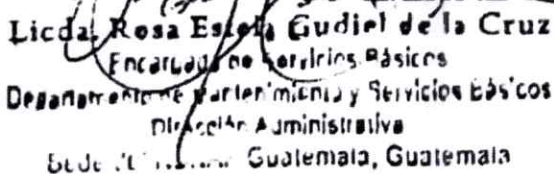 Licda. Rosa Estela Gudiel de la Cruz
Encargada de Servicios Básicos
Departamento de Mantenimiento y Servicios Básicos
Dirección Administrativa
Guatemala, Guatemala